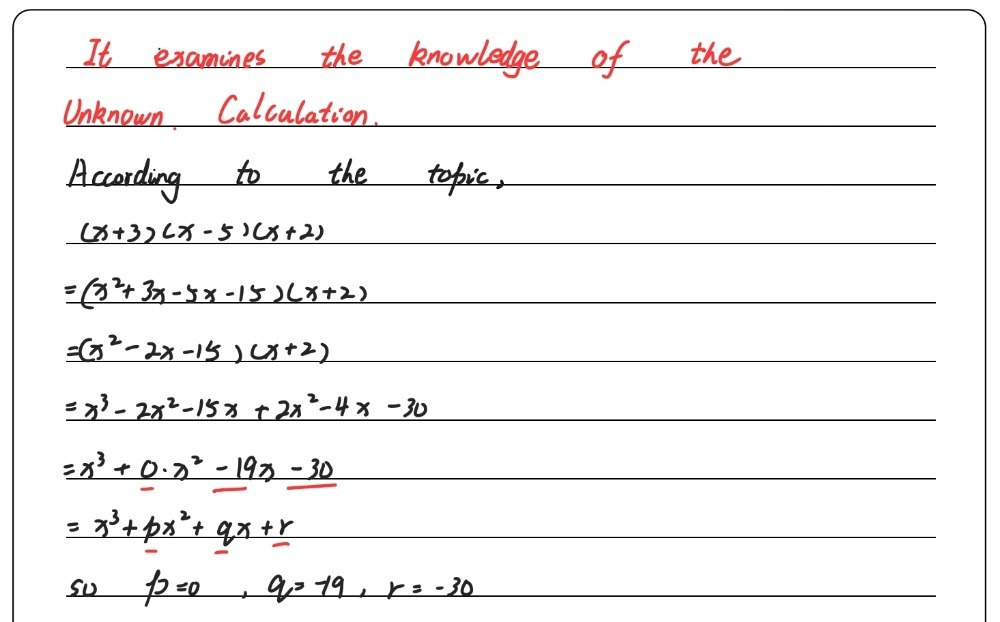 It examines the knowledge of the
Unknown. Calculation.
According to the topic,
(x+3)(x-5)(x+2)
=(x²+3x-5x-15)(x+2)
=(x²-2x-15)(x+2)
=x³-2x²-15x+2x²-4x-30
=x³+0·x²-19x-30
=x³+px²+qx+r
so p=0, q=-19, r=-30